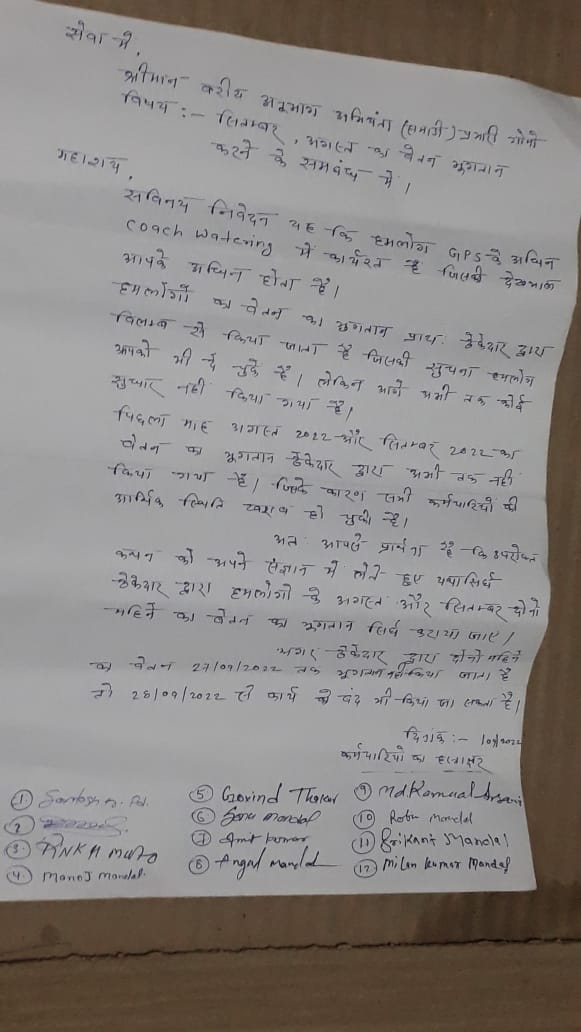 सेवा में,
श्रीमान वरीय अनुभाग अभियंता (समाडि) प्रभारी
विषय :- सितम्बर, अगस्त का वेतन भुगतान
करने के समबंध में।
महाशय,
सविनय निवेदन यह कि हमलोग GPS के अधिन
Coach Watering में कार्यरत है जिसकी देखभाल
आपके अधिन होता है।
हमलोगों का वेतन का भुगतान प्रायः ठेकेदार द्वारा
विलम्ब से किया जाता है जिसकी सुचना हमलोग
आपको भी दे चुके है। लेकिन आगे अभी तक कोई
सुधार नहीं किया गया है।
पिछला माह अगस्त 2022 और सितम्बर 2022 का
वेतन का भुगतान ठेकेदार द्वारा अभी तक नहीं
किया गया है। जिसके कारण सभी कर्मचारियों की
आर्थिक स्थिति खराब हो चुकी है।
अतः आपसे प्रार्थना है कि उपरोक्त
कथन को अपने संज्ञान में लेते हुए यथासिर्घ
ठेकेदार द्वारा हमलोगो के अगस्त और सितम्बर दोनो
महिने का वेतन का भुगतान सिर्घ कराया जाए।
अगर ठेकेदार द्वारा दोनो महिने
का वेतन 27/09/2022 तक भुगतान नहीं किया जाता है
तो 28/09/2022 से कार्य को बंद भी किया जा सकता है।
दिनांक :-
कर्मचारियों का हस्ताक्षर
① Santosh
②
③
④ Manoj Mandal
⑤ Govind Thakur
⑥ Sonu mandal
⑦ Amit kumar
⑧ Angad mandal
⑨ Md Kamaal
⑩ Robin mandal
⑪ Srikant Mandal
⑫ Milan kumar Mandal